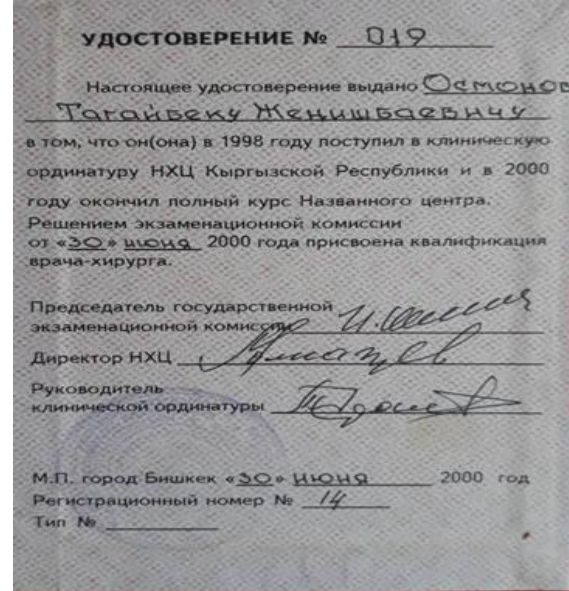 УДОСТОВЕРЕНИЕ № 019
Настоящее удостоверение выдано Осмонов
Тагайбеку Женишбаевичу
в том, что он(она) в 1998 году поступил в клиническую
ординатуру НХЦ Кыргызской Республики и в 2000
году окончил полный курс Названного центра.
Решением экзаменационной комиссии
от «30» июня 2000 года присвоена квалификация
врача-хирурга.
Председатель государственной
экзаменационной комиссии
Директор НХЦ
Руководитель
клинической ординатуры
М.П. город Бишкек «30» июня 2000 год
Регистрационный номер № 14
Тип №